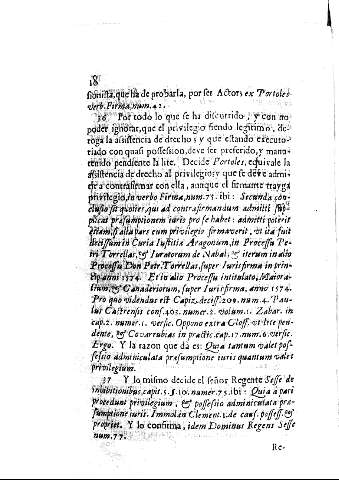 18
sionista, que ha de probarla, por ser Actor; ex Portoles
verb. Firma, num. 42.
36 Por todo lo que se ha discurrido, y con no
poder ignorar, que el privilegio siendo legitimo, de-
roga la assistencia de drecho; y que estando executo-
riado con quasi possession, deve ser preferido, y manu-
tenido pendente la lite. Decide Portoles, equivale la
assistencia de drecho al privilegio; y que se deve admi-
tir a contrafirmar con ella, aunque el firmante trayga
privilegio, in verbo Firma, num. 75. ibi: Secunda con-
clusio sit quoties, qui ad contrafirmandum admitti sup-
plicat præsumptionem iuris pro se habet: admitti poterit
etiam, si alia pars cum privilegio firmaverit, et ita fuit
dictissimum in Curia Iustitiæ Aragonum, in Processu Pe-
tri Torrellas, & Iuratorum de Nabal; & iterum in alio
Processu Don Petr. Torrellas, super Iurisfirma in prin-
cip. anni 1574. Et in alio Processu intitulato, Maioria-
lium, & Ganaderiorum, super Iurisfirma, anno 1574.
Pro quo videndus est Capiz. deciss. 209. num. 4. Pau-
lus Castrensis conf. 403. numer. 2. volum. 1. Zabar. in
cap. 2. numer. 1. versic. Oppono extra Gloss. ut lite pen-
dente, & Covarrubias in practic. cap. 17. num. 6. versic.
Ergo. Y la razon que dà es: Quia tantum valet pos-
sessio adminiculata præsumptione iuris quantum valet
privilegium.
37 Y lo mismo decide el señor Regente Sesse de
inhibitionibus, capit. 5. §. 10. numer. 75. ibi: Quia à pari
procedunt privilegium, & possessio adminiculata præ-
sumptione iuris. Immol. in Clement. 1. de caus. possess. &
propriet. Y lo confirma, idem Dominus Regens Sesse
num. 77.
Re-